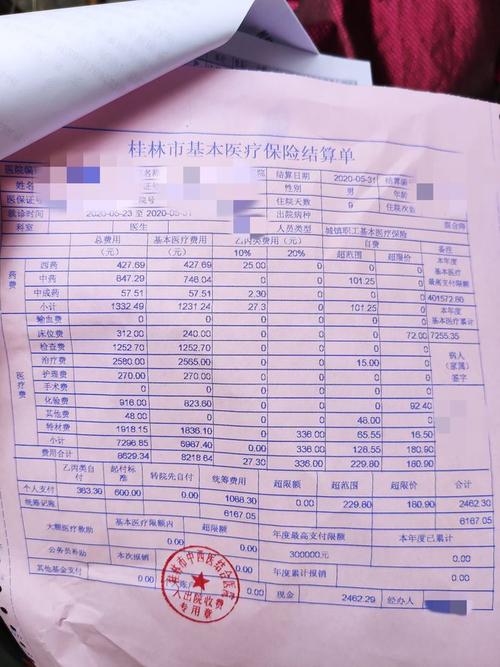 桂林市基本医疗保险结算单
医院编 名称 结算日期 2020-05-31 结算编
姓名 证号 性别 男 年龄
医保证号 院号 住院天数 9 住院次数
就诊时间 2020-05-23 至 2020-05-31 出院病种
科室 医生 人员类型 城镇职工基本医疗保险
总费用(元) 基本医疗费用(元) 乙丙类费用 10% 20% 自费 超范围 超限价 备注
药费
西药 427.69 427.69 25.00 0 0 0 本年度
中药 847.29 746.04 0 0 101.25 0 基本医疗
中成药 57.51 57.51 2.30 0 0 0 最高支付限额
小计 1332.49 1231.24 27.3 0 101.25 0 401572.80
医疗费
输血费 0 0 0 0 0 本年度
床位费 312.00 240.00 0 0 0 72.00 基本医疗累计
检查费 1252.70 1252.70 0 0 0 0 7255.35
治疗费 2580.00 2565.00 0 0 15.00 0 病人
护理费 270.00 270.00 0 0 0 0 (家属)
手术费 0 0 0 0 0 0 签字
化验费 916.00 823.60 0 0 0 92.40
其他费 48.00 0 0 0 48.00 0
转材费 1918.15 1836.10 0 336.00 65.55 16.50
小计 7296.85 6987.40 0.00 336.00 128.55 180.90
费用合计 8629.34 8218.64 27.30 336.00 229.80 180.90
乙丙类自付 起付标准 转院先自付 统筹费用 超限额 超范围 超限价 合计
个人支付 363.30 600.00 0.00 1068.30 0.00 229.80 180.90 2462.30
统筹记账 6167.05 6167.05
大额医疗救助 基本医疗限额内 超限额 年度最高支付限额 本年度已累计
0.00 300000元 0.00
公务员补助 本次报销 年度累计报销
其他基金支付 0.00 0.00 现金 2462.29 经办人
桂林市中西医结合医
入出院收费
专用章